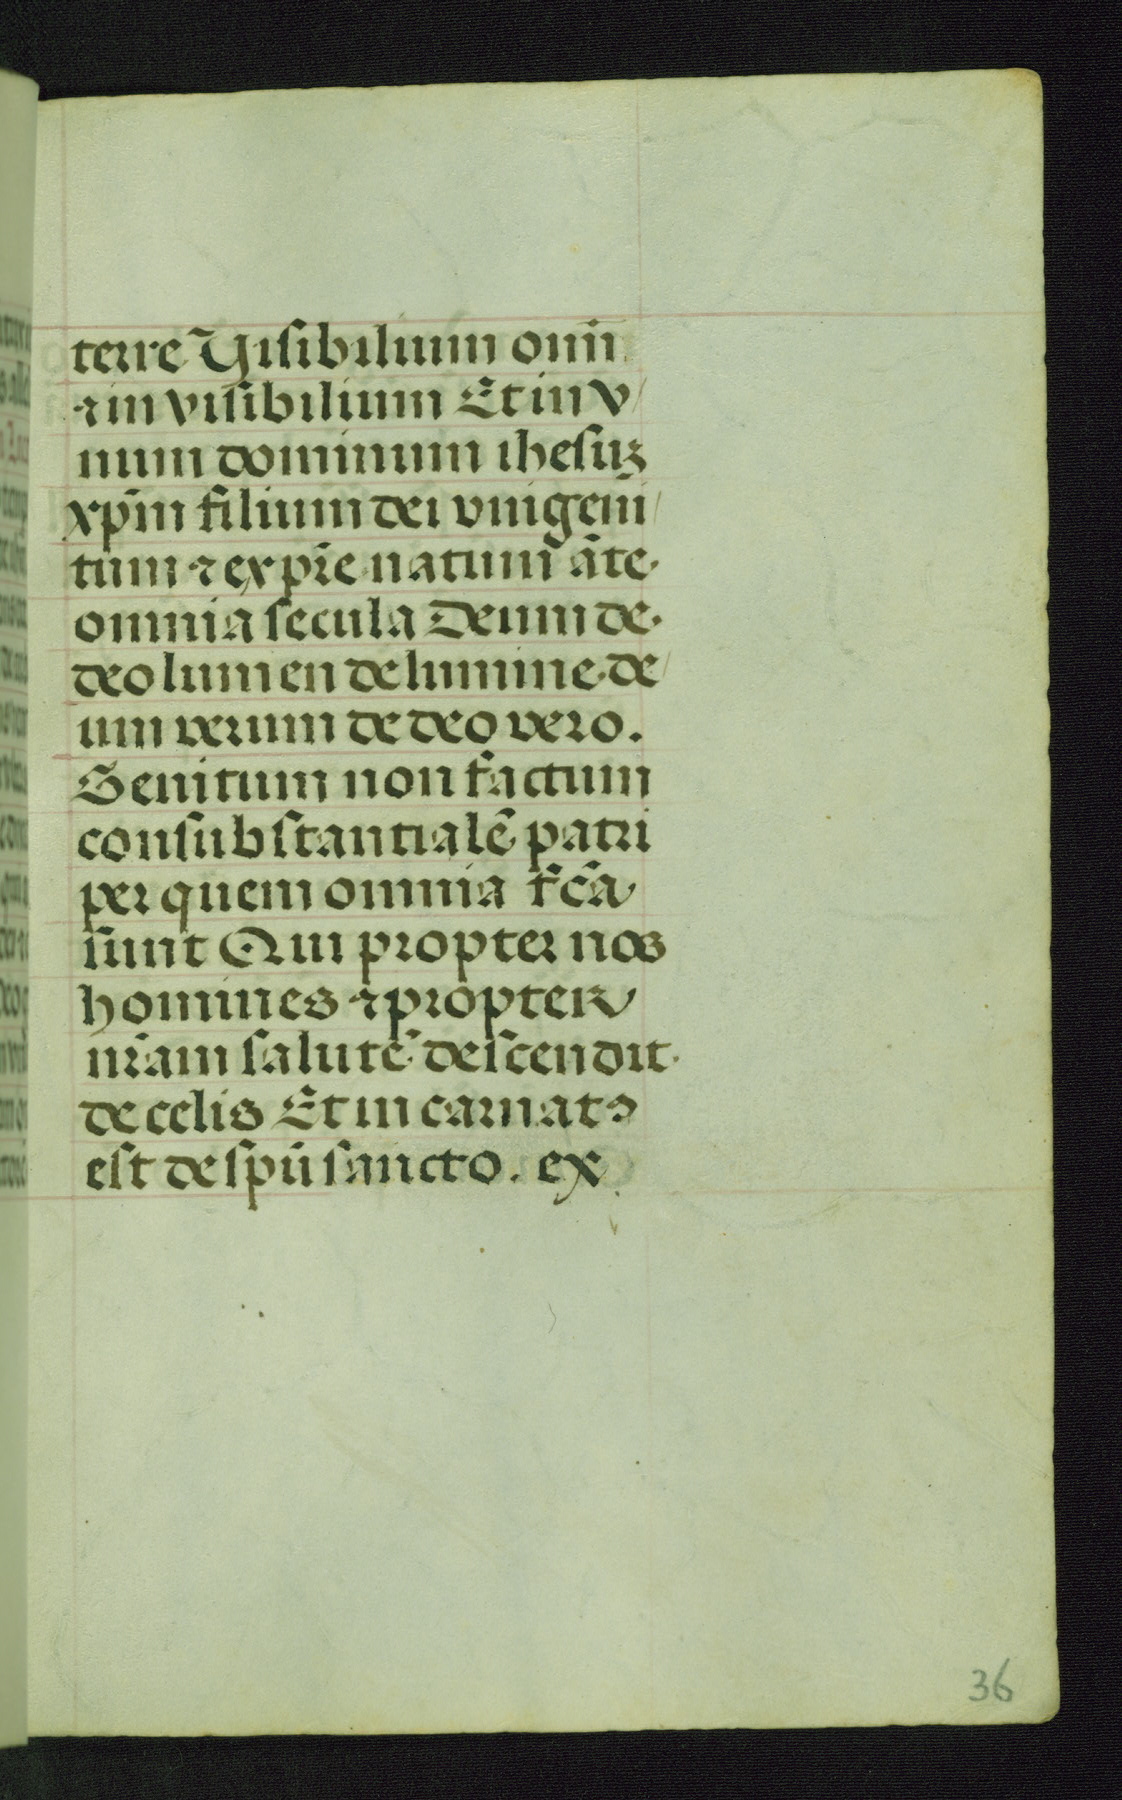 terre Visibilium omĩ
⁊ in visibilium Et in v/
num dominum ihesuꝫ
xp̃m filium dei vnigeni/
tum ⁊ ex pr̃e natum ãte.
omnia secula Deum de.
deo lumen de lumine. de/
um verum de deo vero.
Genitum non factum
consubstantialẽ patri
per quem omnia fc̃a
sunt Qui propter nos
homines ⁊ propter
nr̃am salutẽ descendit.
de celis Et in carnatꝰ
est de spũ sancto. ex
36